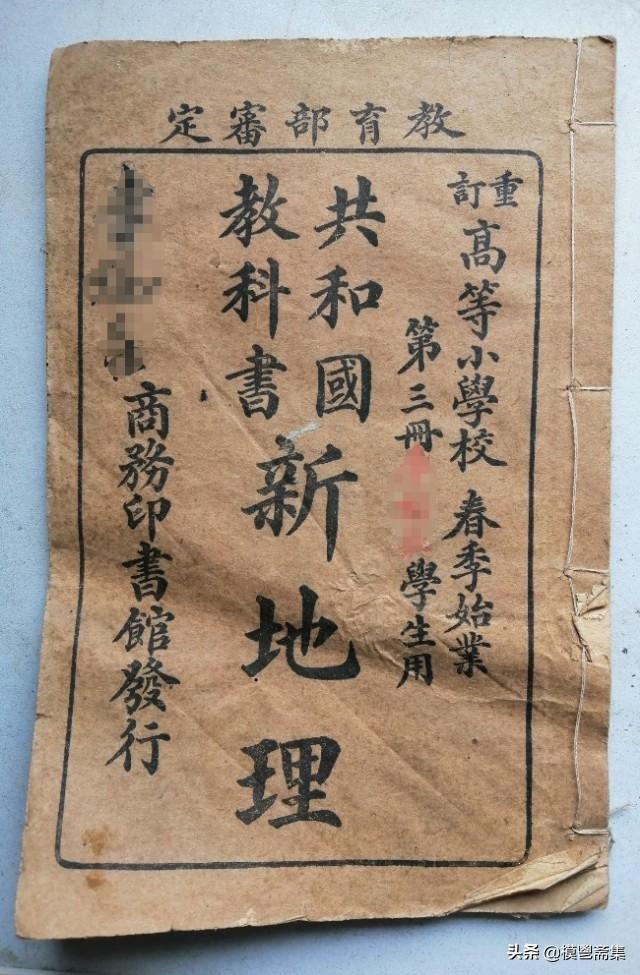 教育部審定
重訂
高等小學校 春季始業
第三冊
學生用
共和國
教科書
新地理
商務印書館發行
头条 @模鬯斋集